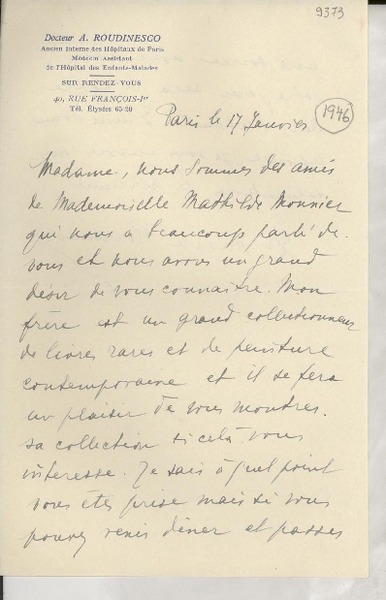 9373
Docteur A. ROUDINESCO
Ancien Interne des Hôpitaux de Paris
Médecin Assistant
de l'Hôpital des Enfants-Malades
SUR RENDEZ-VOUS
40, RUE FRANÇOIS-Ier
Tél. Élysées 65-20
Paris le 17 Janvier
1946
Madame, nous sommes des amis
de Mademoiselle Mathilde Monnier
qui nous a beaucoup parlé de
vous et nous avons un grand
désir de vous connaître. Mon
frère est un grand collectionneur
de livres rares et de peinture
contemporaine et il se fera
un plaisir de vous montrer
sa collection si cela vous
intéresse. Je sais à quel point
vous êtes prise mais si vous
pouvez venir dîner et passer